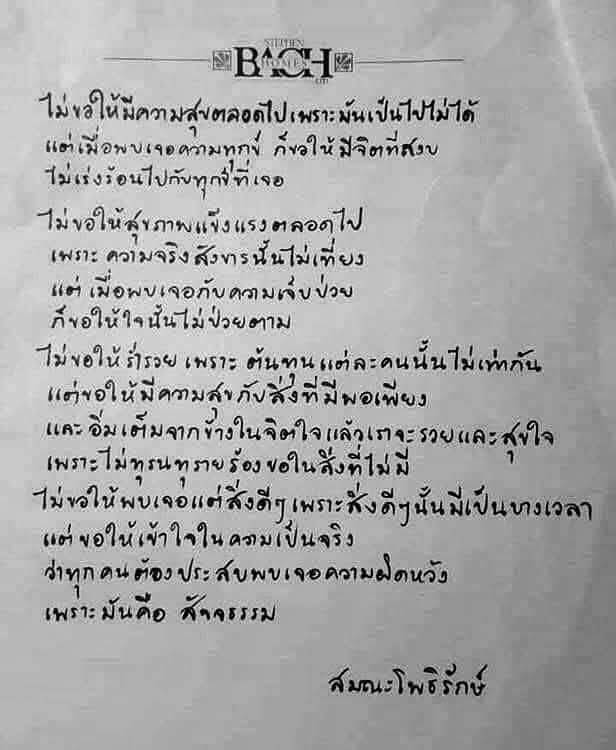 STEPHEN
BACH
HOMES
LTD
ไม่ขอให้มีความสุขตลอดไปเพราะมันเป็นไปไม่ได้
แต่เมื่อพบเจอความทุกข์ ก็ขอให้มีจิตที่สงบ
ไม่เร่งร้อนไปกับทุกข์ที่เจอ
ไม่ขอให้สุขภาพแข็งแรงตลอดไป
เพราะ ความจริงสังขารนั้นไม่เที่ยง
แต่ เมื่อพบเจอกับความเจ็บป่วย
ก็ขอให้ใจนั้นไม่ป่วยตาม
ไม่ขอให้ร่ำรวย เพราะ ต้นทุนแต่ละคนนั้นไม่เท่ากัน
แต่ขอให้มีความสุขกับสิ่งที่มีพอเพียง
และ อิ่มเต็มจากข้างในจิตใจแล้วเราจะรวยและสุขใจ
เพราะไม่ทุรนทุรายร้องขอในสิ่งที่ไม่มี
ไม่ขอให้พบเจอแต่สิ่งดีๆเพราะสิ่งดีๆนั้นมีเป็นบางเวลา
แต่ ขอให้เข้าใจใน ความเป็นจริง
ว่าทุกคนต้องประสบพบเจอความผิดหวัง
เพราะมันคือ สัจจธรรม
สมณะโพธิรักษ์